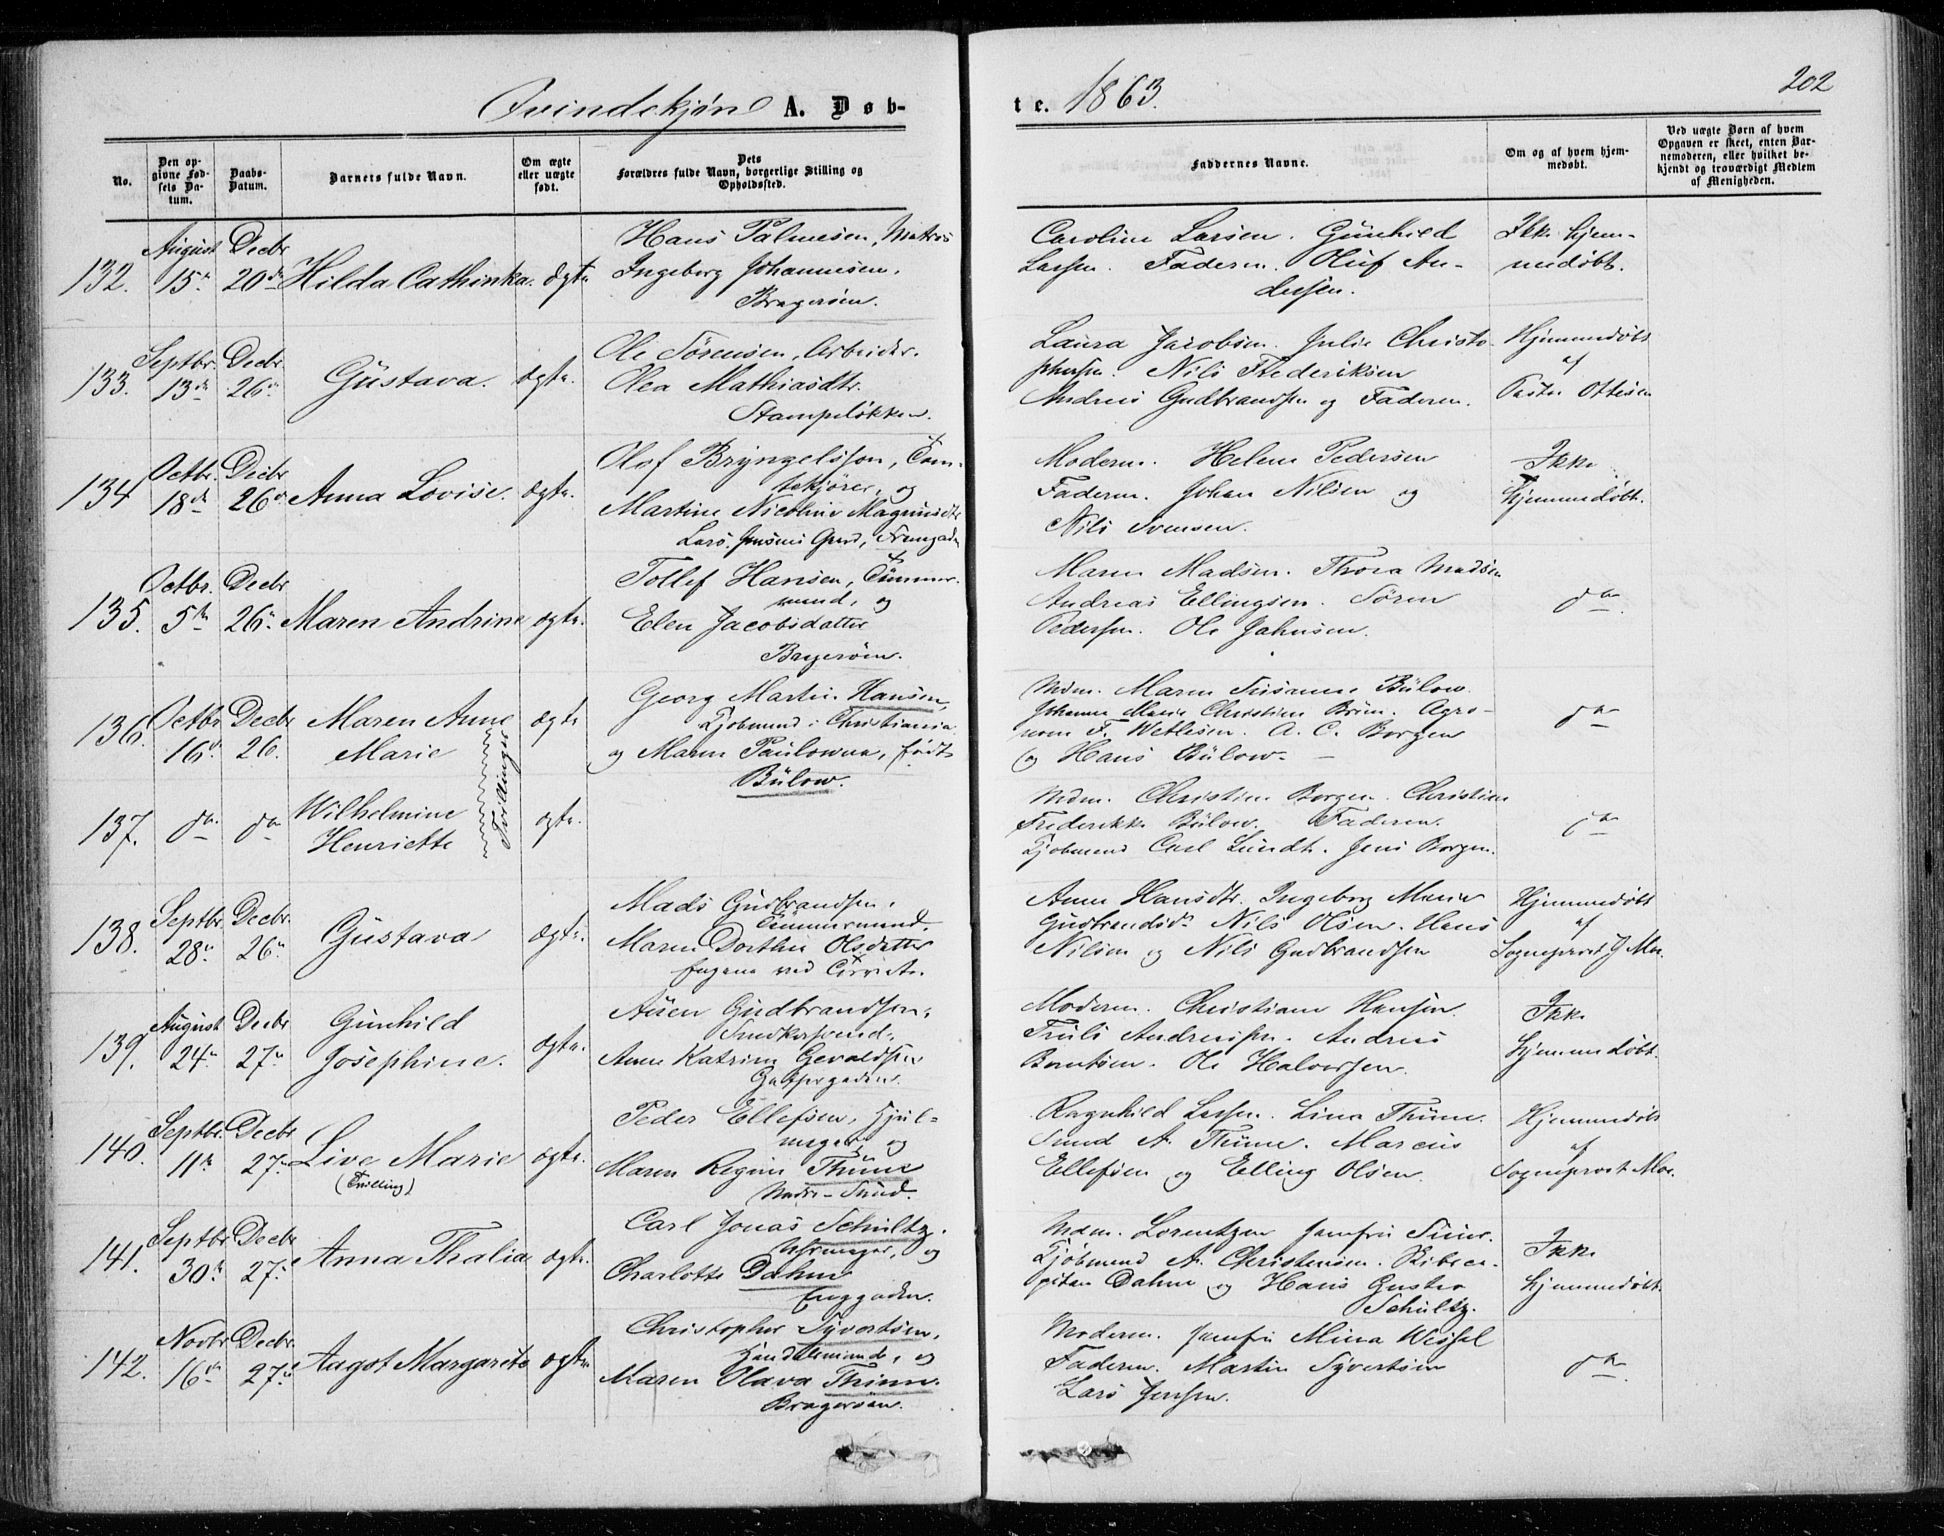 202
Qvindekjøn A. Døb-
te. 1863.
No.
Den op-
givne Fød-
sels Da-
tum.
Daabs-
Datum.
Barnets fulde Navn.
Om ægte
eller uægte
født.
Dets
Forældres fulde Navn, borgerlige Stilling og
Opholdssted.
Faddernes Navne.
Om og af hvem hjem-
medøbt.
Ved uægte Børn af hvem
Opgaven er skeet, enten Bar-
nemoderen, eller hvilket be-
kjendt og troværdigt Medlem
af Menigheden.
132. August 15de Decbr 20de Hilda Cathinka. ægte
Hans Palmesen, Matros
Ingeborg Johannesen.
Bragerøen.
Caroline Larsen. Gunhild
Larsen. Faderen. Oluf An-
dersen.
Ikke hjem-
medøbt.
133. Septbr. 13de Decbr. 26de Gustava. ægte.
Ole Sørensen, Arbeider.
Olea Mathiasdtr.
Stampeløkken.
Laura Jacobsen. Julie Christo-
phersen. Nils Frederiksen
Andreas Gudbrandsen og Faderen.
Hjemmedøbt
af
Pastor Ottesen
134 Octbr. 18de Decbr 26de Anna Lovise. ægte.
Olof Bryngelsson, Tom-
tekjører, og
Martine Nicoline Magnusdtr
Lars Jensens Gaard,
Moderen. Helene Pedersen
Faderen. Johan Nilsen og
Nils Svensen.
Ikke
hjemmedøbt.
135. Octbr. 5te Decbr 26de Maren Andrine ægte.
Tollef Hansen, Tømmer-
mand, og
Elen Jacobsdatter
Bragerøen.
Maren Madsen. Thora Madsen
Andreas Ellingsen. Søren
Pedersen. Ole Jahnsen.
do
136. Octbr 16de Decbr 26. Maren Anne
Marie
ægte
Georg Martin Hansen,
Kjøbmand i Christiania
og Maren Paulowna, født
Bülow.
Mdm. Maren Susanne Bülow.
Johanne Marie Christine Brun. Agro-
nom F. Wetlesen. A. C. Borgen
og Hans Bülow.
do
Tvillinger
137. do do Wilhelmine
Henriette
ægte.
Mdm. Christine Borgen. Christine
Frederikke Bülow. Faderen.
Kjøbmand Carl Lundt. Jens Borgen.
do
138. Septbr 28de Decbr. 26de Gustava ægte.
Mads Gudbrandsen,
Tømmermand.
Maren Dorthea Olsdatter
Engene ved
Anne Hansdtr. Ingeborg Marie
Gudbrandsdr. Nils Olsen. Hans
Nilsen og Nils Gudbrandsen
Hjemmedøbt
af
Sogneprest J Moe.
139. August 24de Decbr 27de Gunhild
Josephine.
ægte.
Auen Gudbrandsen,
Anne Katrine
Moderen. Christiane Hansen.
Truls Andreasen. Andreas
Berntsen. Ole Halvorsen.
Ikke
hjemmedøbt.
140. Septbr. 11te Decbr 27. Live Marie
(Tvilling)
ægte.
Peder Ellefsen, Hjul-
mager, og
Maren Regine Thune
Nedre-Sund.
Ragnhild Larsen. Lina Thune.
Sund A. Thune. Marcus
Ellefsen og Elling Olsen.
Hjemmedøbt
af
Sogneprest Moe.
141. Septbr 30te Decbr 27. Anna Thalia ægte.
Carl Jonas Schultz,
Uhrmager, og
Charlotte Dahm
Enggaden.
Mdm. Lorentzen Jomfru
Kjøbmand A. Christensen. Skibsca-
pitain Dahm og Hans Gustav
Schultz.
Ikke
hjemmedøbt.
142. Novbr 16de Decbr 27de Aagot Margarete ægte
Christopher Syvertsen,
Handelsmand, og
Maren Olava Thune.
Bragerøen.
Moderen. Jomfru Mina Wessel
Faderen. Martin Syvertsen
Lars Jensen.
do